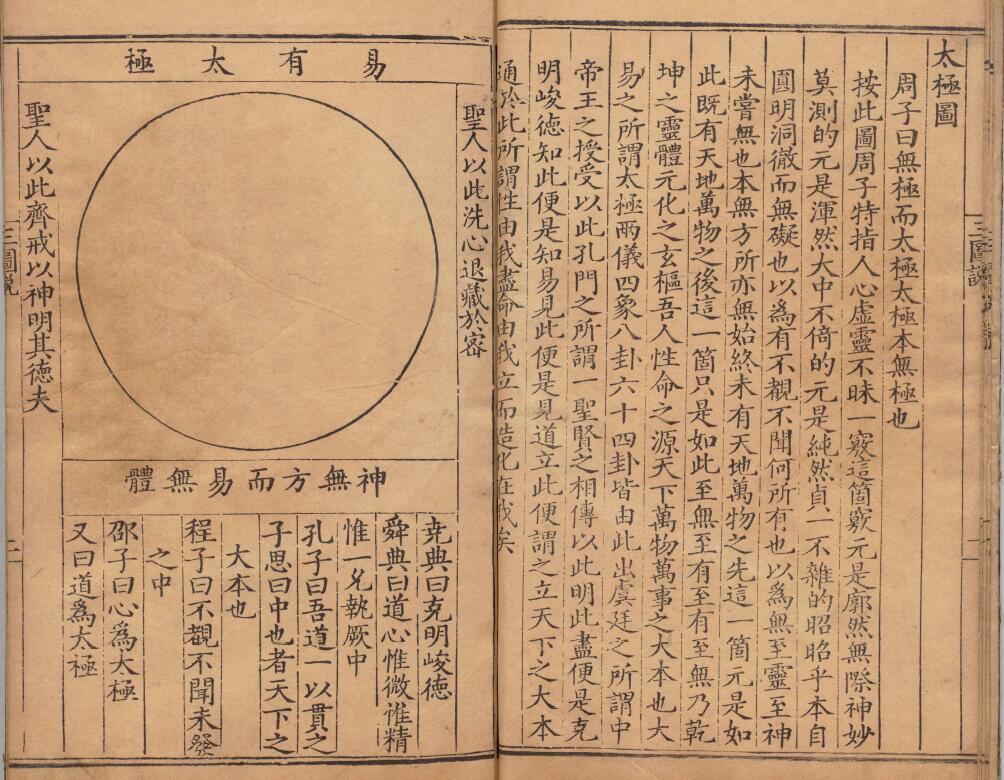 太極圖
周子曰無極而太極太極本無極也
按此圖周子特指人心虛靈不昧一竅這箇竅元是廓然無際神妙
莫測的元是渾然大中不倚的元是純然貞一不雜的昭昭乎本自
圓明洞徹而無礙也以為有不覩不聞何所有也以為無至靈至神
未嘗無也本無方所亦無始終未有天地萬物之先這一箇元是如
此既有天地萬物之後這一箇只是如此至無至有至有至無乃乾
坤之靈體元化之玄樞吾人性命之源天下萬物萬事之大本也大
易之所謂太極兩儀四象八卦六十四卦皆由此出虞廷之所謂中
帝王之授受以此孔門之所謂一聖賢之相傳以此明此盡便是克
明峻德知此便是知易見此便是見道立此便謂之立天下之大本
通於此所謂性由我盡命由我立而造化在我矣
三圖說
易有太極
聖人以此洗心退藏於密
聖人以此齊戒以神明其德夫
神無方而易無體
堯典曰克明峻德
舜典曰道心惟微惟精
惟一允執厥中
孔子曰吾道一以貫之
子思曰中也者天下之
大本也
程子曰不覩不聞未發
之中
邵子曰心為太極
又曰道為太極
三圖說